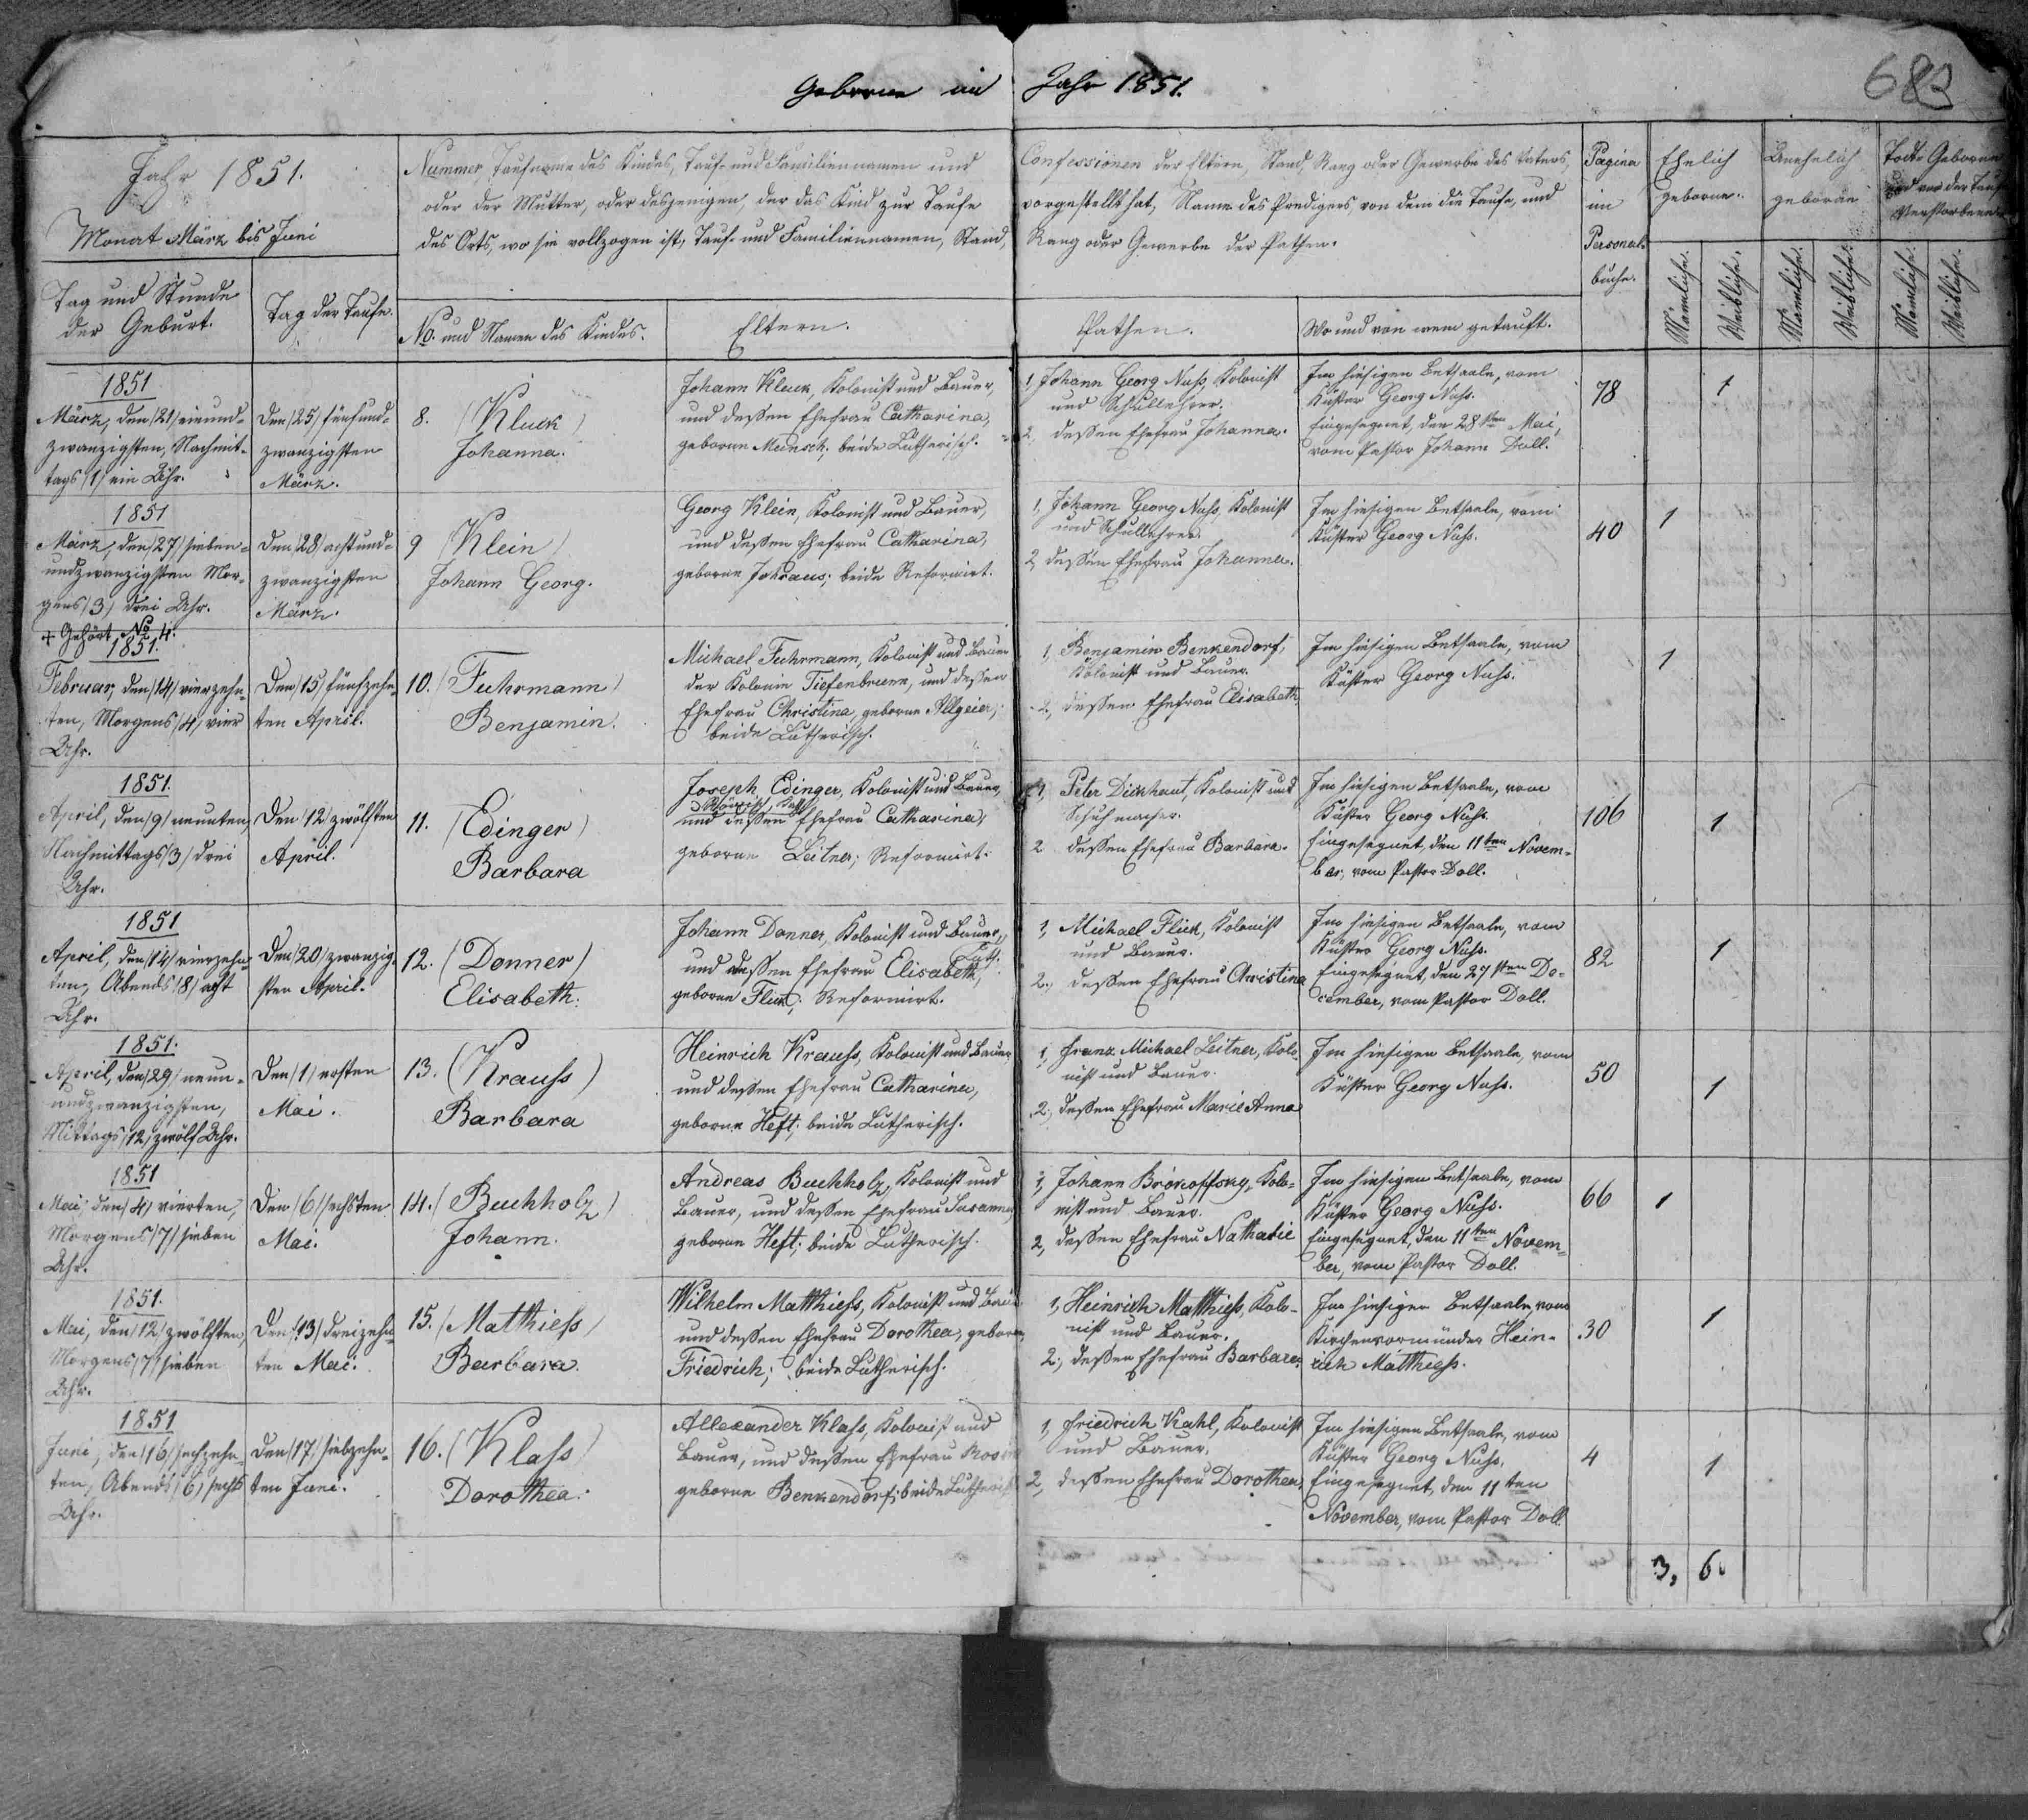 Geborne im Jahr 1851.
683
Jahr 1851.
Monat März bis Juni
Nummer, Taufname des Kindes, Tauf- und Familiennamen und
oder der Mutter, oder desjenigen, der das Kind zur Taufe
des Orts, wo sie vollzogen ist, Tauf- und Familiennamen, Stand,
Confessionen der Eltern, Stand, Rang oder Gewerbe des Vaters,
vorgestellt hat, Name des Predigers, von dem die Taufe, und
Rang oder Gewerbe der Pathen.
Pagina
im
Personal-
buche.
Ehelich
geborne.
Unehelich
geborne
Todt Geborne
und vor der Taufe
Verstorbene
Tag und Stunde
der Geburt.
Tag der Taufe.
No. und Namen des Kindes.
Eltern.
Pathen.
Wo und von wem getauft.
Männliche.
Weibliche.
Männliche.
Weibliche.
Männliche.
Weibliche.
1851
März, den /21/ einund-
zwanzigsten, Nachmit-
tags /1/ ein Uhr.
Den /25/ fünfund-
zwanzigsten
März.
8. (Kluck)
Johanna.
Johann Kluck, Kolonist und Bauer,
und dessen Ehefrau Catharina,
geborne Mensch, beide Lutherisch.
1, Johann Georg Nuss, Kolonist
und Schullehrer.
2, dessen Ehefrau Johanna.
Im hiesigen Betsaale, vom
Küster Georg Nuss.
Eingesegnet, den 28sten Mai,
vom Pastor Johann Doll.
78
1
1851
März, den /27/ sieben-
undzwanzigsten Mor-
gens /3/ drei Uhr.
Den /28/ achtund-
zwanzigsten
März.
9 (Klein)
Johann Georg.
Georg Klein, Kolonist und Bauer,
und dessen Ehefrau Catharina,
geborne Johraus; beide Reformirt.
1, Johann Georg Nuss, Kolonist
und Schullehrer.
2, dessen Ehefrau Johanna.
Im hiesigen Betsaale, vom
Küster Georg Nuss.
40
1
+ Gehört No 4.
1851.
Februar, den /14/ vierzehn-
ten, Morgens /4/ vier
Uhr.
Den /15/ fünfzehn-
ten April.
10. (Fuhrmann)
Benjamin.
Michael Fuhrmann, Kolonist und Bauer
der Kolonie Tiefenbrunn, und dessen
Ehefrau Christina, geborne Allgeier;
beide Lutherisch.
1, Benjamin Benkendorf,
Kolonist und Bauer.
2, dessen Ehefrau Elisabeth
Im hiesigen Betsaale, vom
Küster Georg Nuss.
1
1851.
April, den /9/ neunten,
Nachmittags /3/ drei
Uhr.
Den /12 zwölften
April.
11. (Edinger)
Barbara
Joseph Edinger, Kolonist und Bauer,
Römisch Kath.
und dessen Ehefrau Catharina,
geborne Leitner; Reformirt.
1, Peter Dickhaut, Kolonist und
Schuhmacher.
2 dessen Ehefrau Barbara.
Im hiesigen Betsaale, vom
Küster Georg Nuss.
Eingesegnet, den 11ten Novem-
ber, vom Pastor Doll.
106
1
1851
April, den /14/ vierzehn-
ten, Abends /8/ acht
Uhr.
Den /20/ zwanzig-
sten April.
12. (Donner)
Elisabeth.
Johann Donner, Kolonist und Bauer,
Luth.
und dessen Ehefrau Elisabeth,
geborne Flick; Reformirt.
1, Michael Flick, Kolonist
und Bauer.
2., dessen Ehefrau Christina
Im hiesigen Betsaale, vom
Küster Georg Nuss.
Eingesegnet, den 27sten De-
cember, vom Pastor Doll.
82
1
1851.
April, den /29/ neun-
undzwanzigsten,
Mittags /12/ zwölf Uhr.
Den /1/ ersten
Mai.
13. (Krauss)
Barbara
Heinrich Krauss, Kolonist und Bauer
und dessen Ehefrau Catharina,
geborne Heft; beide Lutherisch.
1, Franz Michael Leitner, Kolo-
nist und Bauer.
2., dessen Ehefrau Marie Anna
Im hiesigen Betsaale, vom
Küster Georg Nuss.
50
1
1851
Mai, den /4/ vierten,
Morgens /7/ sieben
Uhr.
Den /6/ sechsten
Mai.
14. (Buchholz)
Johann.
Andreas Buchholz, Kolonist und
Bauer, und dessen Ehefrau Susanna
geborne Heft; beide Lutherisch.
1, Johann Brokoffsky, Kolo-
nist und Bauer.
2, dessen Ehefrau Nathalie
Im hiesigen Betsaale, vom
Küster Georg Nuss.
Eingesegnet, den 11ten Novem-
ber, vom Pastor Doll.
66
1
1851.
Mai, den /12/ zwölften,
Morgens /7/ sieben
Uhr.
Den /13/ dreizehn-
ten Mai.
15. (Matthiess)
Barbara
Wilhelm Matthiess, Kolonist und Bauer
und dessen Ehefrau Dorothea, geborne
Friedrich; beide Lutherisch.
1, Heinrich Matthiess, Kolo-
nist und Bauer.
2., dessen Ehefrau Barbara.
Im hiesigen Betsaale, vom
Kirchenvormünder Hein-
rich Matthiess.
30
1
1851
Juni, den /16/ sechzehn-
ten, Abends /6/ sechs
Uhr.
Den /17/ siebzehn-
ten Juni.
16. (Klass)
Dorothea.
Allexander Klass, Kolonist und
Bauer, und dessen Ehefrau
geborne Benkendorf; beide Lutherisch
1, Friedrich Kahl, Kolonist
und Bauer.
2, dessen Ehefrau Dorothea.
Im hiesigen Betsaale, vom
Küster Georg Nuss.
Eingesegnet, den 11ten
November, vom Pastor Doll.
4
1
3, 6.